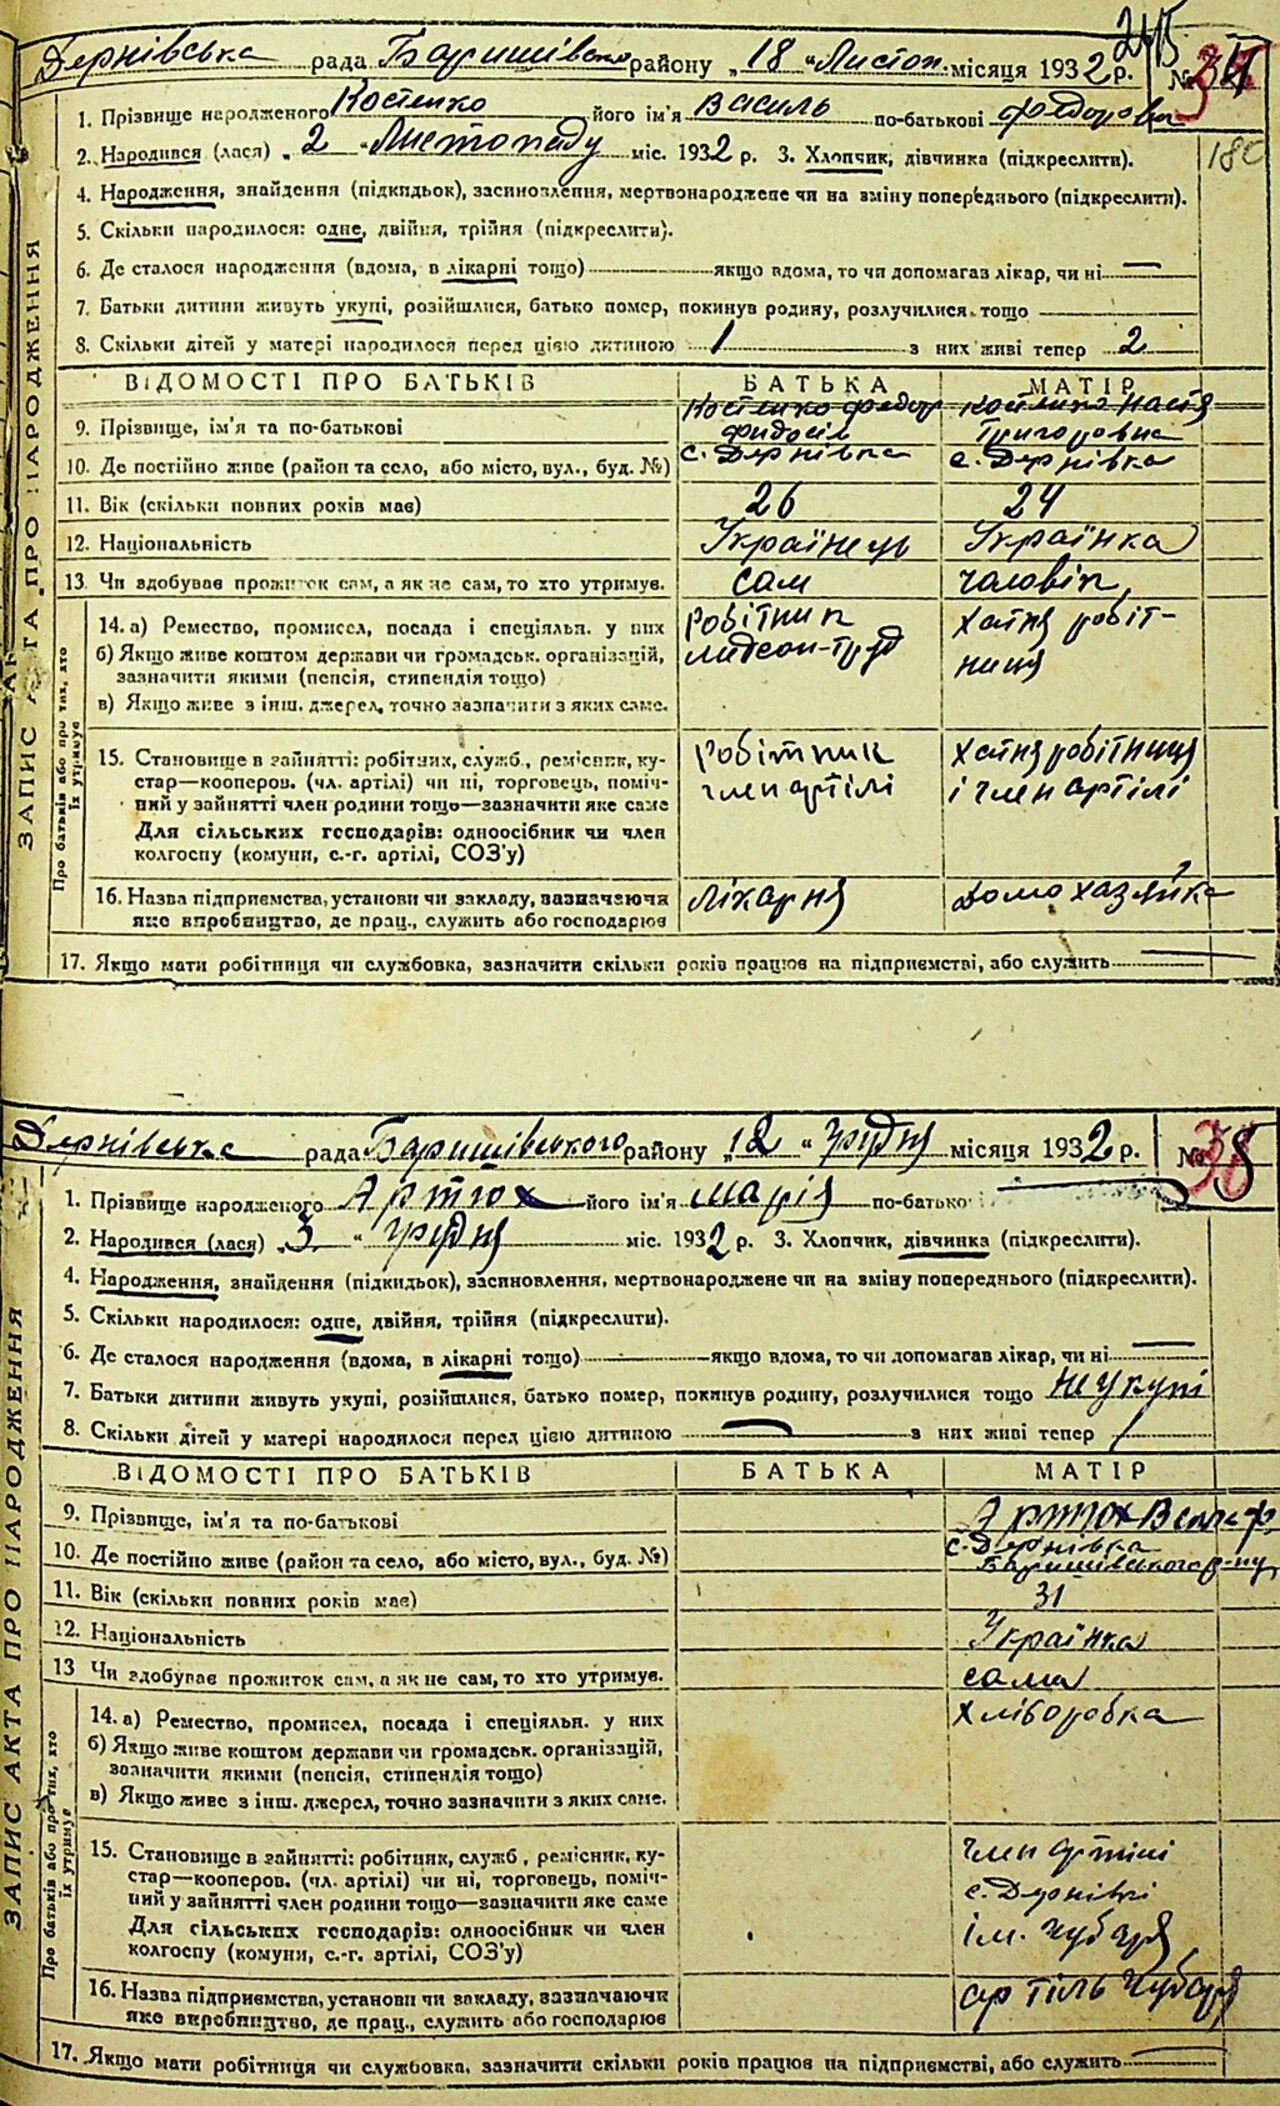 Дернівська рада Баришівського району „18“ Листоп. місяця 1932 р. №
1. Прізвище народженого Костенко його ім'я Василь по-батькові Федорови
2. Народився (лася) „2“ Листопаду міс. 1932 р. 3. Хлопчик, дівчинка (підкреслити).
180
4. Народження, знайдення (підкидьок), засиновлення, мертвонароджене чи на зміну попереднього (підкреслити).
5. Скільки народилося: одне, двійня, трійня (підкреслити).
6. Де сталося народження (вдома, в лікарні тощо) якщо вдома, то чи допомагав лікар, чи ні —
7. Батьки дитини живуть укупі, розійшлися, батько помер, покинув родину, розлучилися тощо
8. Скільки дітей у матері народилося перед цією дитиною 1 з них живі тепер 2
ВІДОМОСТІ ПРО БАТЬКІВ БАТЬКА МАТІР
9. Прізвище, ім'я та по-батькові Костенко Федор Костенко Настя Григоровна
10. Де постійно живе (район та село, або місто, вул., буд. №) с. Дернівка с. Дернівка
11. Вік (скільки повних років має) 26 24
12. Національність Українець Українка
13 Чи здобуває прожиток сам, а як не сам, то хто утримує. сам чоловік
14. а) Ремество, промисел, посада і спеціяльн. у них Робітник хатня робіт-
б) Якщо живе коштом держави чи громадськ. організацій, ниця
зазначити якими (пенсія, стипендія тощо)
в) Якщо живе з інш. джерел, точно зазначити з яких саме.
15. Становище в зайнятті: робітник, служб., ремісник, ку- робітник хатня робітниця
стар—кооперов. (чл. артілі) чи ні, торговець, поміч- член артілі і член артілі
ний у зайнятті член родини тощо—зазначити яке саме
Для сільських господарів: одноосібник чи член
колгоспу (комуни, с.-г. артілі, СОЗ'у)
16. Назва підприємства, установи чи закладу, зазначаючи Лікарня Домохазяйка
яке виробництво, де прац., служить або господарює
17. Якщо мати робітниця чи службовка, зазначити скільки років працює на підприємстві, або служить —
ЗАПИС АКТА ПРО НАРОДЖЕННЯ
Про батьків або про тих, хто
їх утримує
Дернівська рада Баришівського району „12“ грудня місяця 1932 р. № 38
1. Прізвище народженого Артюх його ім'я Марія по-батько
2. Народився (лася) „3“ грудня міс. 1932 р. 3. Хлопчик, дівчинка (підкреслити).
4. Народження, знайдення (підкидьок), засиновлення, мертвонароджене чи на зміну попереднього (підкреслити).
5. Скільки народилося: одне, двійня, трійня (підкреслити).
6. Де сталося народження (вдома, в лікарні тощо) якщо вдома, то чи допомагав лікар, чи ні —
7. Батьки дитини живуть укупі, розійшлися, батько помер, покинув родину, розлучилися тощо не укупі
8. Скільки дітей у матері народилося перед цією дитиною — з них живі тепер /
ВІДОМОСТІ ПРО БАТЬКІВ БАТЬКА МАТІР
9. Прізвище, ім'я та по-батькові Артюх
10. Де постійно живе (район та село, або місто, вул., буд. №) с. Дернівка
Баришівського р-ну
11. Вік (скільки повних років має) 31
12. Національність Українка
13 Чи здобуває прожиток сам, а як не сам, то хто утримує. сама
14. а) Ремество, промисел, посада і спеціяльн. у них хліборобка
б) Якщо живе коштом держави чи громадськ. організацій,
зазначити якими (пенсія, стипендія тощо)
в) Якщо живе з інш. джерел, точно зазначити з яких саме.
15. Становище в зайнятті: робітник, служб., ремісник, ку- член артілі
стар—кооперов. (чл. артілі) чи ні, торговець, поміч-
ний у зайнятті член родини тощо—зазначити яке саме с. Дернівкі
Для сільських господарів: одноосібник чи член ім. Чубаря
колгоспу (комуни, с.-г. артілі, СОЗ'у)
16. Назва підприємства, установи чи закладу, зазначаючи артіль Чубаря
яке виробництво, де прац., служить або господарює
17. Якщо мати робітниця чи службовка, зазначити скільки років працює на підприємстві, або служить —
ЗАПИС АКТА ПРО НАРОДЖЕННЯ
Про батьків або про тих, хто
їх утримує